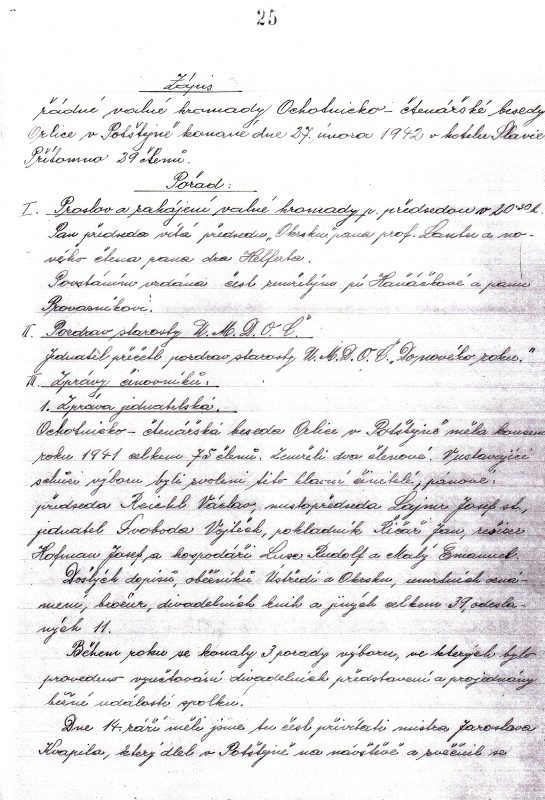 25
Zápis
řádné valné hromady Ochotnicko-čtenářské besedy
Orlice v Potštýně konané dne 27. února 1942 v hotelu Slavie
Přítomno 29 členů.
Pořad:
I. Proslov a zahájení valné hromady p. předsedou v 20·30 h.
Pan předseda vítá předsedu „Okrsku" pana prof. Lantu a no-
vého člena pana dra Helferta.
Povstáním vzdána čest zemřelým pí Hanáčkové a panu
Provazníkovi.
II. Pozdrav starosty Ú. M. D. O. Č."
Jednatel přečetl pozdrav starosty Ú. M. D. O. Č. „Do nového roku."
III. Zprávy činovníků:
1. Zpráva jednatelská.
Ochotnicko-čtenářská beseda Orlice v Potštýně měla koncem
roku 1941 celkem 75 členů. Zemřeli dva členové. V ustavující
schůzi výboru byli zvoleni tito hlavní činitelé, pánové:
předseda Reichl Václav, místopředseda Lajner Josef st.,
jednatel Svoboda Vojtěch, pokladník Říčař Jan, režiser
Hofman Josef, a hospodáři Lusa Rudolf a Malý Emanuel.
Došlých dopisů, oběžníků Ústředí a Okrsku, úmrtních ozná-
mení, brožur, divadelních knih a jiných celkem 39, odesla-
ných 11.
Během roku se konaly 3 porady výboru, ve kterých bylo
provedeno vyúčtování divadelních představení a projednány
běžné události spolku.
Dne 14. září měli jsme tu čest přivítati mistra Jaroslava
Kvapila, který dlel v Potštýně na návštěvě a zvěčnil se